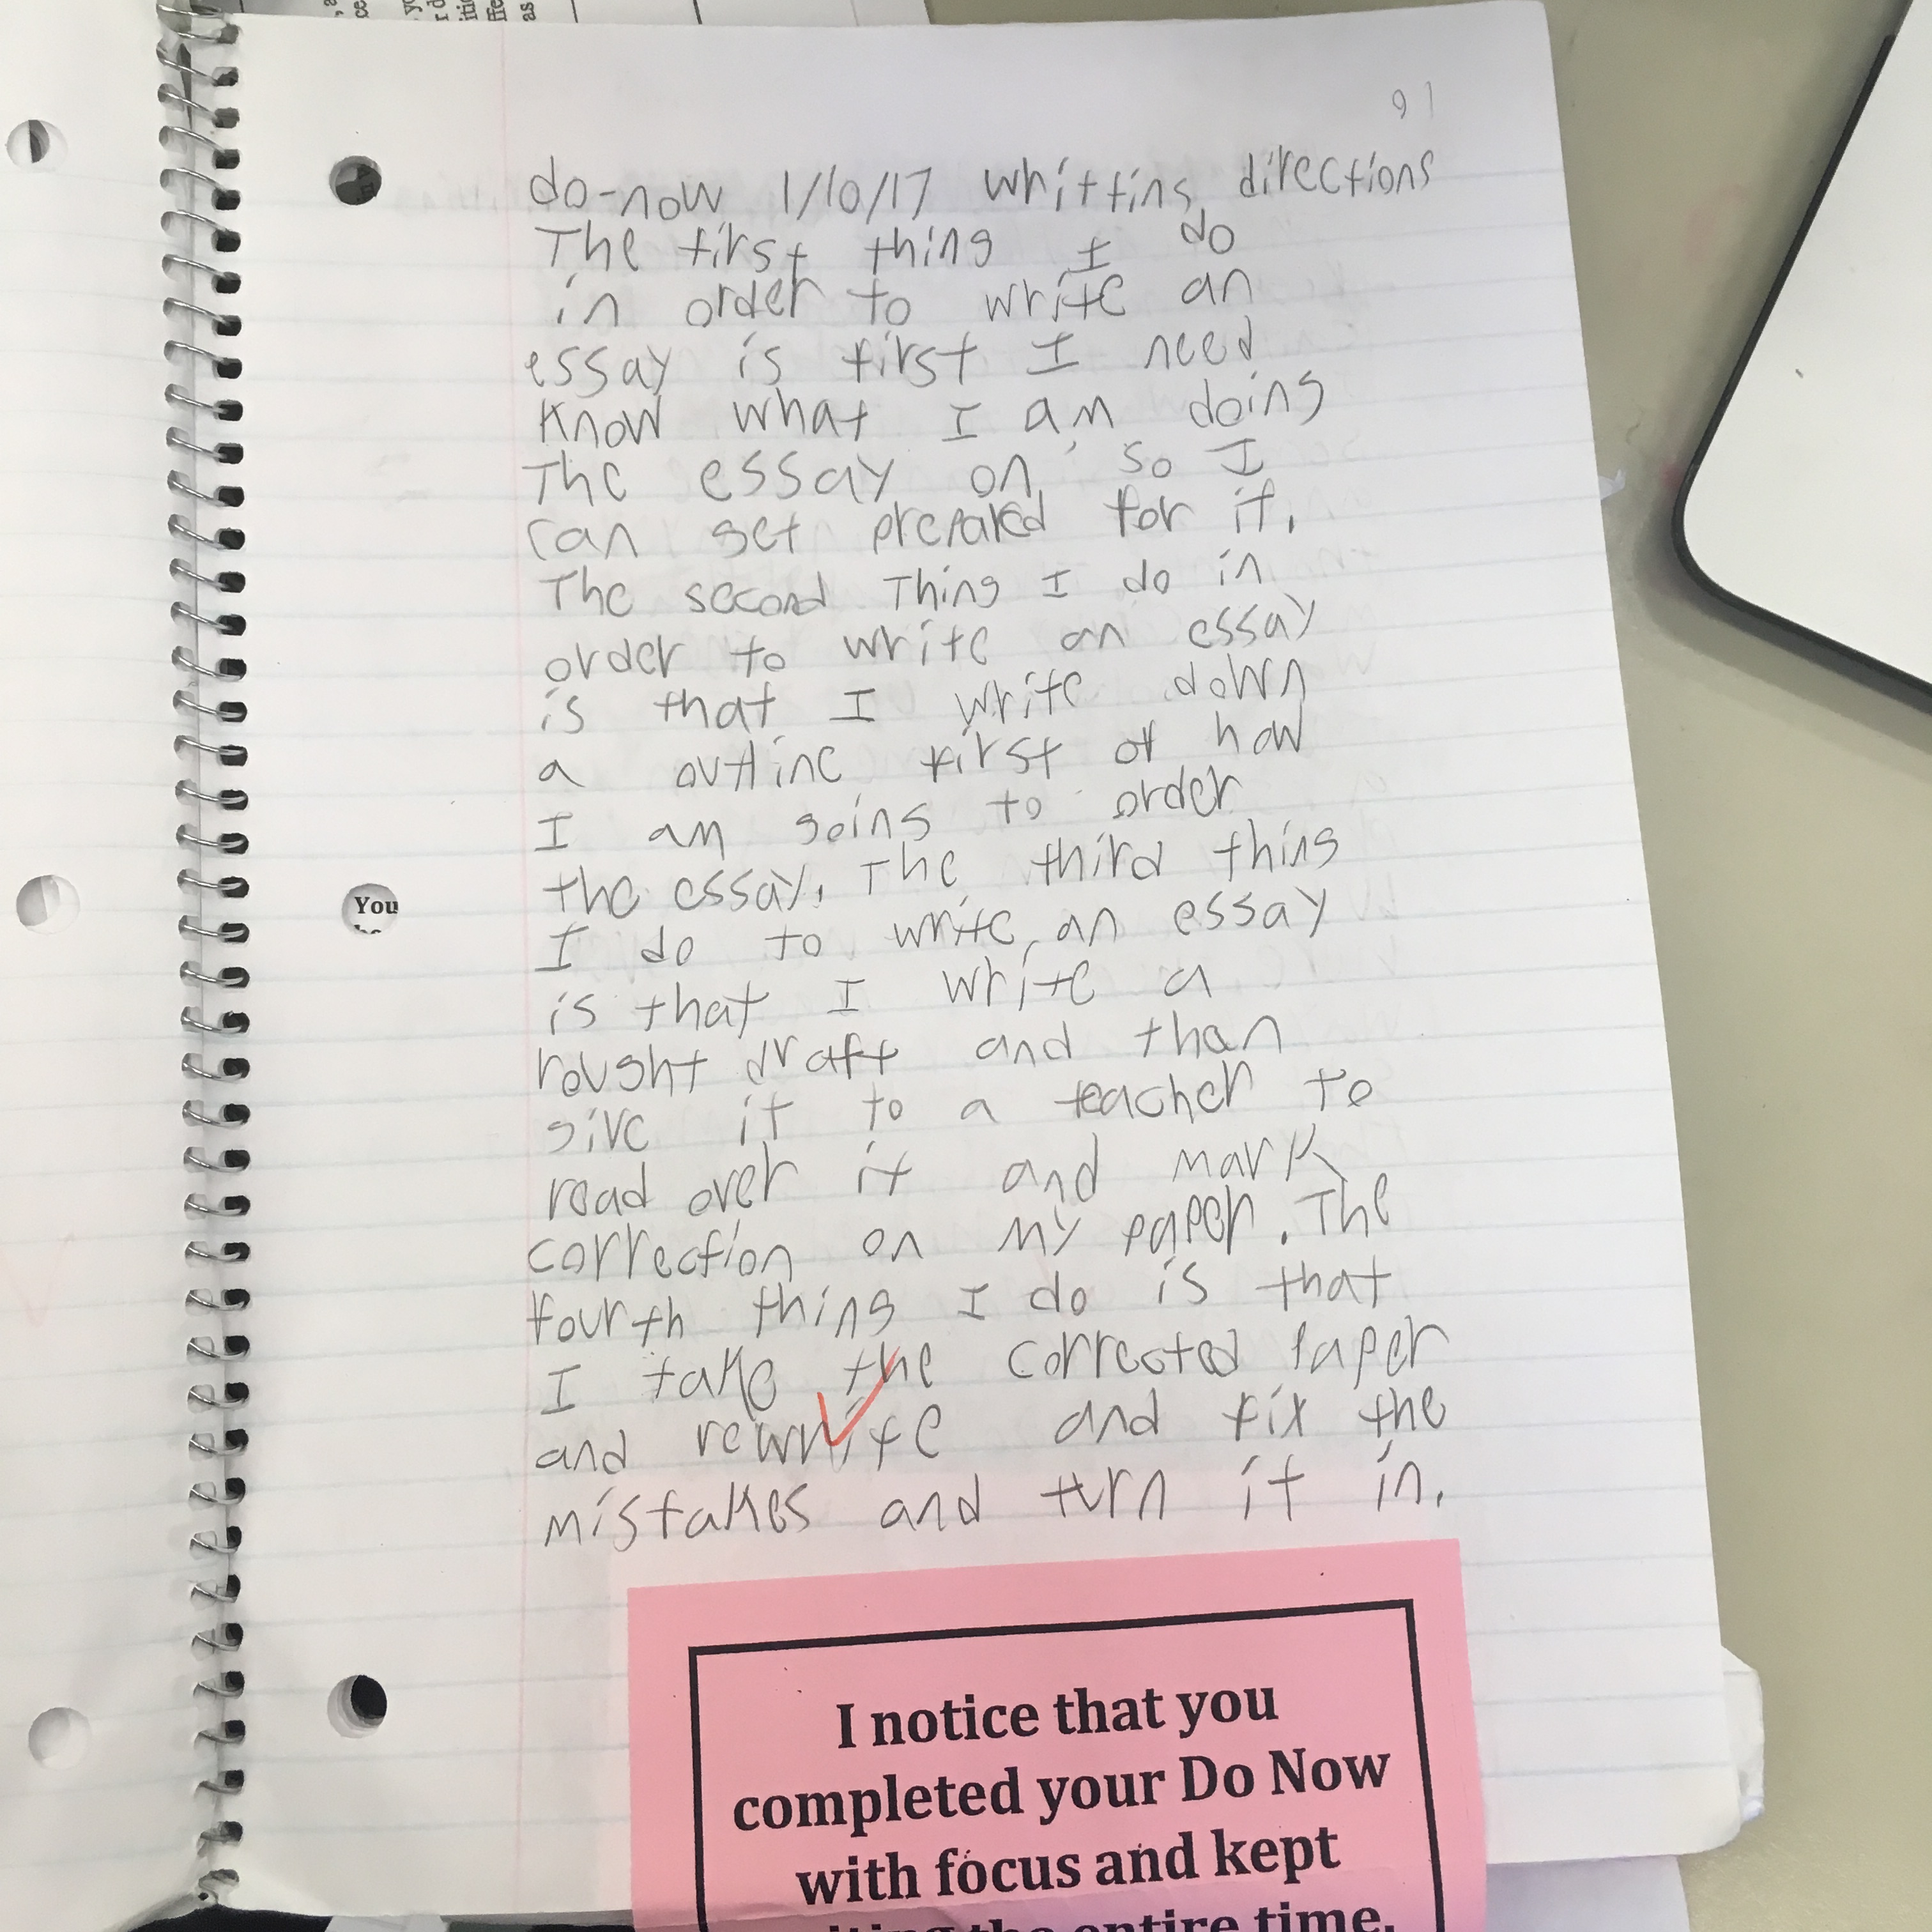 91
do-now 1/10/17 whitting directions
The first thing I do
in order to write an
essay is first I need
know what I am doing
The essay on, so I
can get prepared for it.
The second Thing I do in
order to write an essay
is that I write down
a outline first of how
I am going to order
the essay. The third thing
I do to write an essay
is that I write a
rought draft and than
give it to a teacher to
read over it and mark
correction on my paper. The
fourth thing I do is that
I take the corrected paper
and rewrite and fix the
mistakes and turn it in.
You
I notice that you
completed your Do Now
with focus and kept
the entire time.